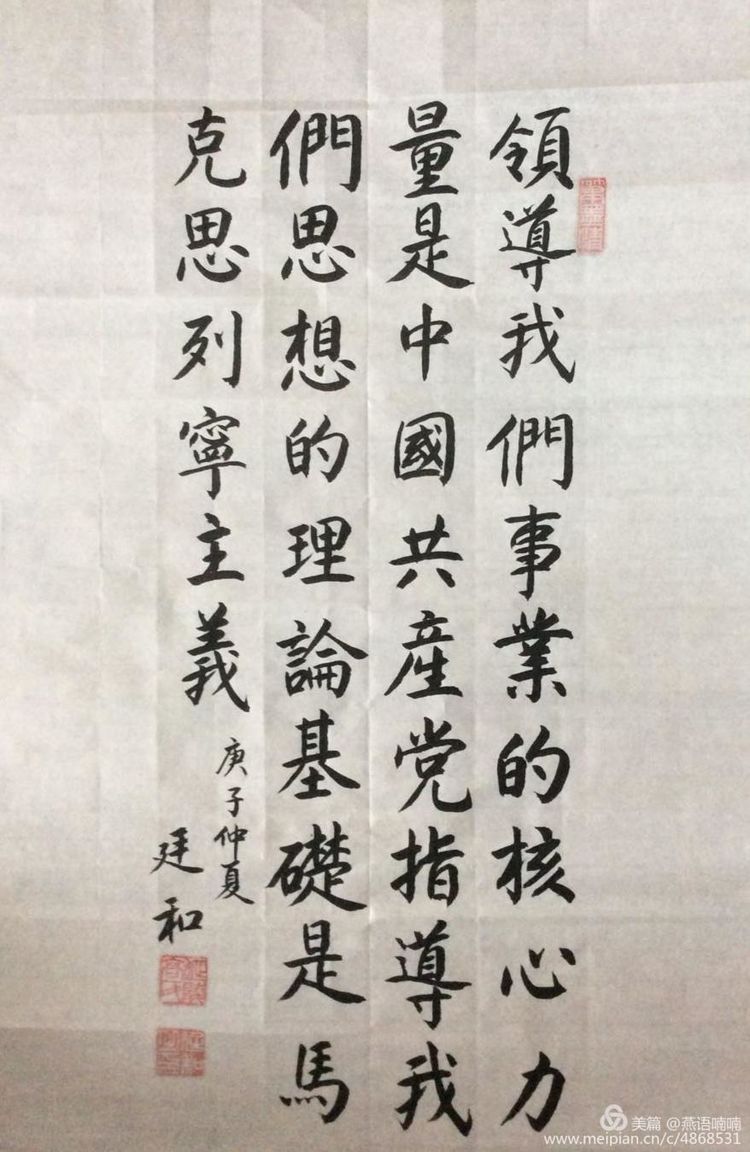 領導我們事業的核心力
量是中國共産党指導我
們思想的理論基礎是馬
克思列寧主義
庚子仲夏
廷和
美篇 @燕语喃喃
www.meipian.cn/c/4868531